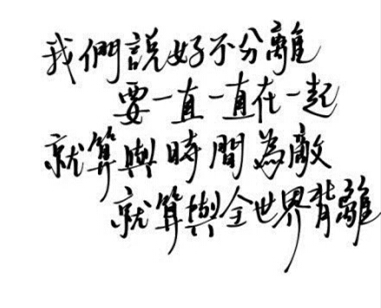 我們說好不分離
要一直一直在一起
就算與時間為敵
就算與全世界背離